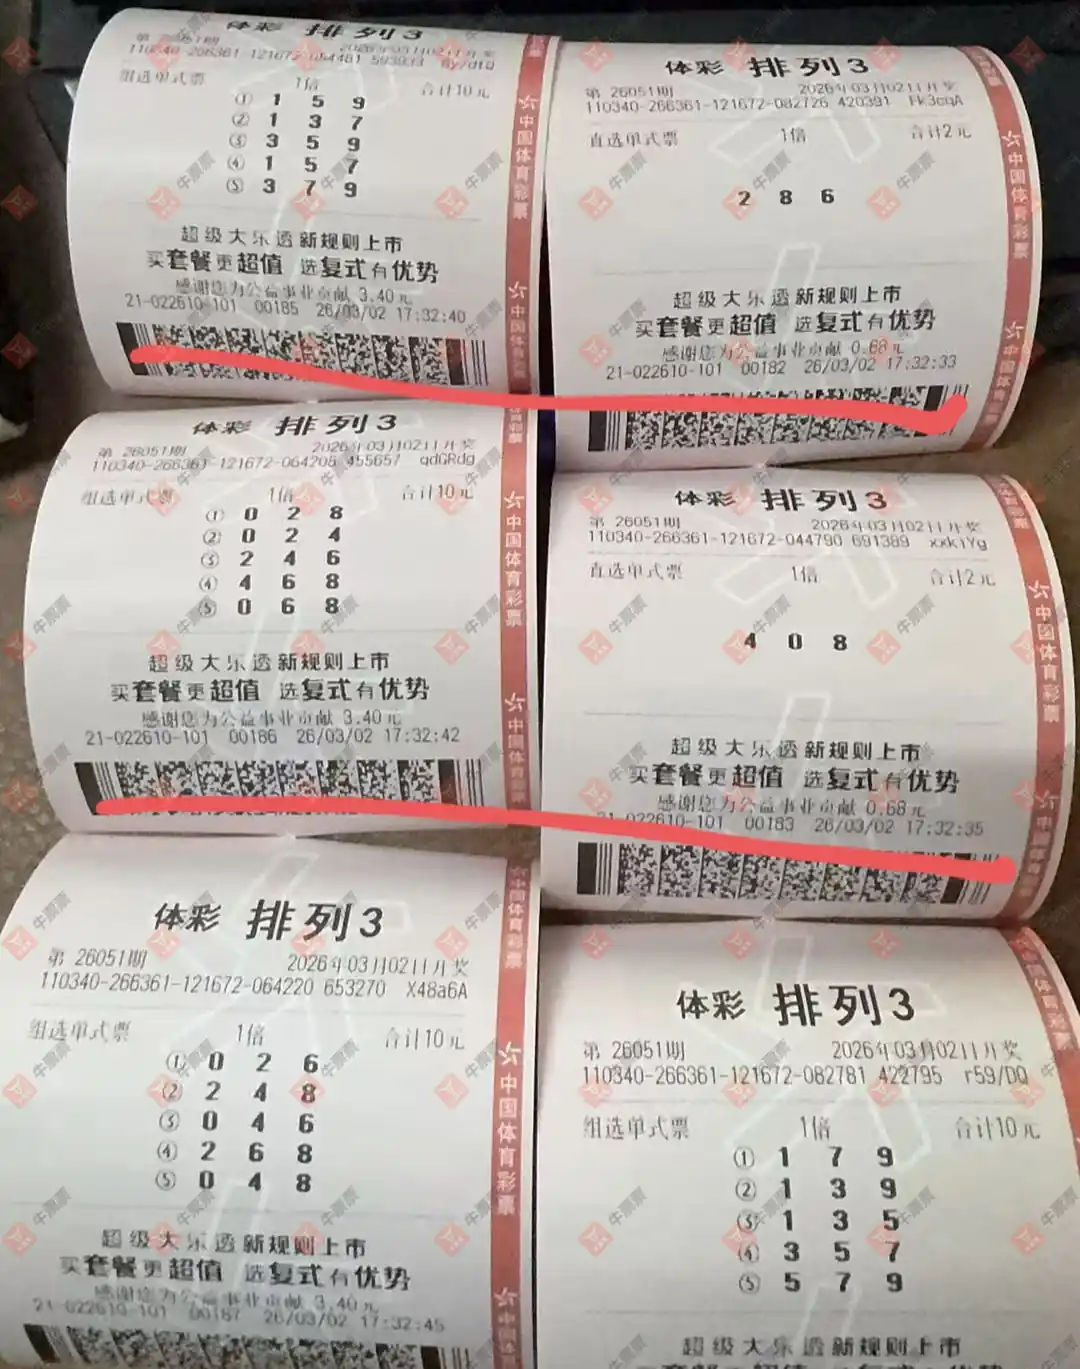 体彩 排列3
2026年03月02日开奖
110340-266361-121672-064481 593933
组选单式票 1倍 合计10元
① 1 5 9
② 1 3 7
③ 3 5 9
④ 1 5 7
⑤ 3 7 9
超级大乐透新规则上市
买套餐更超值 选复式有优势
感谢您为公益事业贡献 3.40元
21-022610-101 00185 26/03/02 17:32:40
中国体育彩票
体彩 排列3
第 26051期 2026年03月02日开奖
110340-266361-121672-082726 420391 Fk3cqA
直选单式票 1倍 合计2元
2 8 6
超级大乐透新规则上市
买套餐更超值 选复式有优势
感谢您为公益事业贡献 0.68元
21-022610-101 00182 26/03/02 17:32:33
中国体育彩票
体彩 排列3
第 26051期 2026年03月02日开奖
110340-266361-121672-064205 455657 qdGRdg
组选单式票 1倍 合计10元
① 0 2 8
② 0 2 4
③ 2 4 6
④ 4 6 8
⑤ 0 6 8
超级大乐透新规则上市
买套餐更超值 选复式有优势
感谢您为公益事业贡献 3.40元
21-022610-101 00186 26/03/02 17:32:42
中国体育彩票
体彩 排列3
第 26051期 2026年03月02日开奖
110340-266361-121672-044790 691389 xxkiYg
直选单式票 1倍 合计2元
4 0 8
超级大乐透新规则上市
买套餐更超值 选复式有优势
感谢您为公益事业贡献 0.68元
21-022610-101 00183 26/03/02 17:32:35
中国体育彩票
体彩 排列3
第 26051期 2026年03月02日开奖
110340-266361-121672-064220 653270 X48a6A
组选单式票 1倍 合计10元
① 0 2 6
② 2 4 8
③ 0 4 6
④ 2 6 8
⑤ 0 4 8
超级大乐透新规则上市
买套餐更超值 选复式有优势
感谢您为公益事业贡献 3.40元
21-022610-101 00187 26/03/02 17:32:45
中国体育彩票
体彩 排列3
第 26051期 2026年03月02日开奖
110340-266361-121672-082781 422795 r59/DQ
组选单式票 1倍 合计10元
① 1 7 9
② 1 3 9
③ 1 3 5
④ 3 5 7
⑤ 5 7 9
超级大乐透新规则上市
中国体育彩票
牛票票